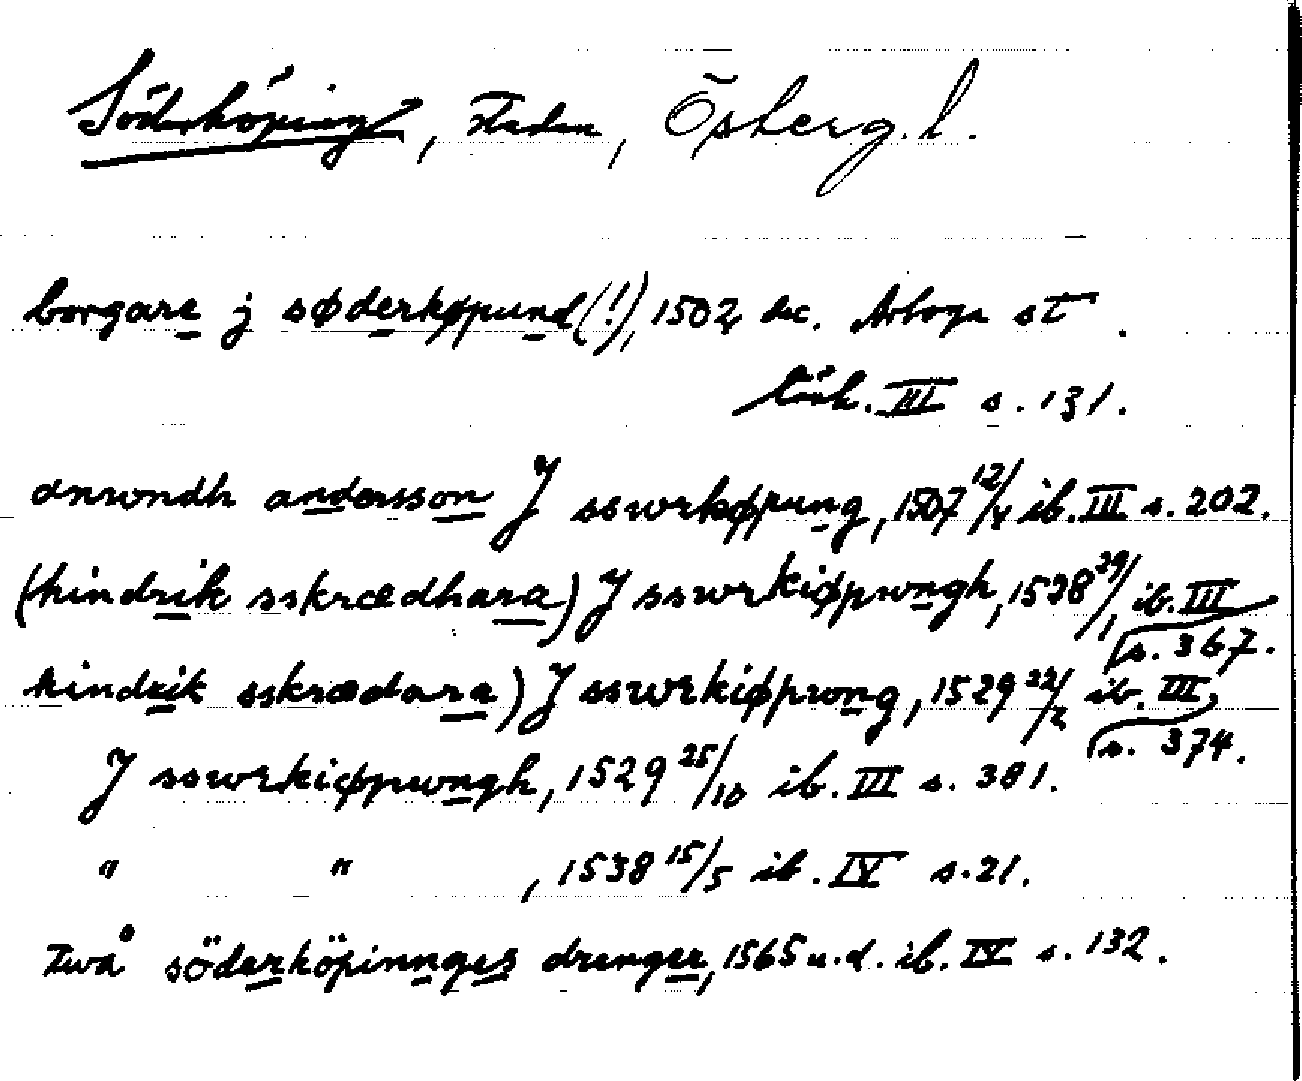 Söderköping, staden, Östergl.
borgare j søderkøpund(!), 1502 dec. Arboga st
tänk. III s. 131.
anwndh andersson J sswrkøpung, 1507 12/4 ib. III s. 202.
(hindrik sskrædhara) J sswrkiøpwngh, 1528 29/1 ib. III
s. 367.
hindrik sskrædara) J sswrkiøpwng, 1529 22/2 ib. III,
s. 374.
J sswrkiøpwngh, 1529 25/10 ib. III s. 381.
" " , 1538 15/5 ib. IV s. 21.
Twå söderköpinnges drenger, 1565 u.d. ib. IV s. 132.